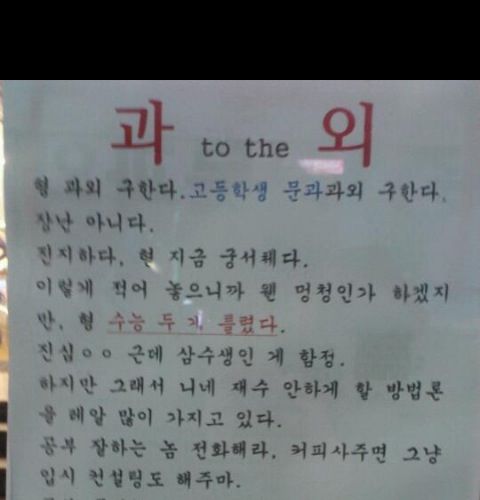 과 to the 외
형 과외 구한다. 고등학생 문과과외 구한다.
장난 아니다.
진지하다, 형 지금 궁서체다.
이렇게 적어 놓으니까 웬 멍청인가 하겠지
만, 형 수능 두 개 틀렸다.
진심ㅇㅇ 근데 삼수생인 게 함정.
하지만 그래서 니네 재수 안하게 할 방법론
을 레알 많이 가지고 있다.
공부 잘하는 놈 전화해라, 커피사주면 그냥
입시 컨설팅도 해주마.